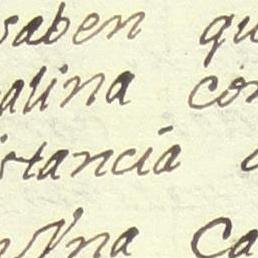 saben qu
alina con
stancia
una Ca